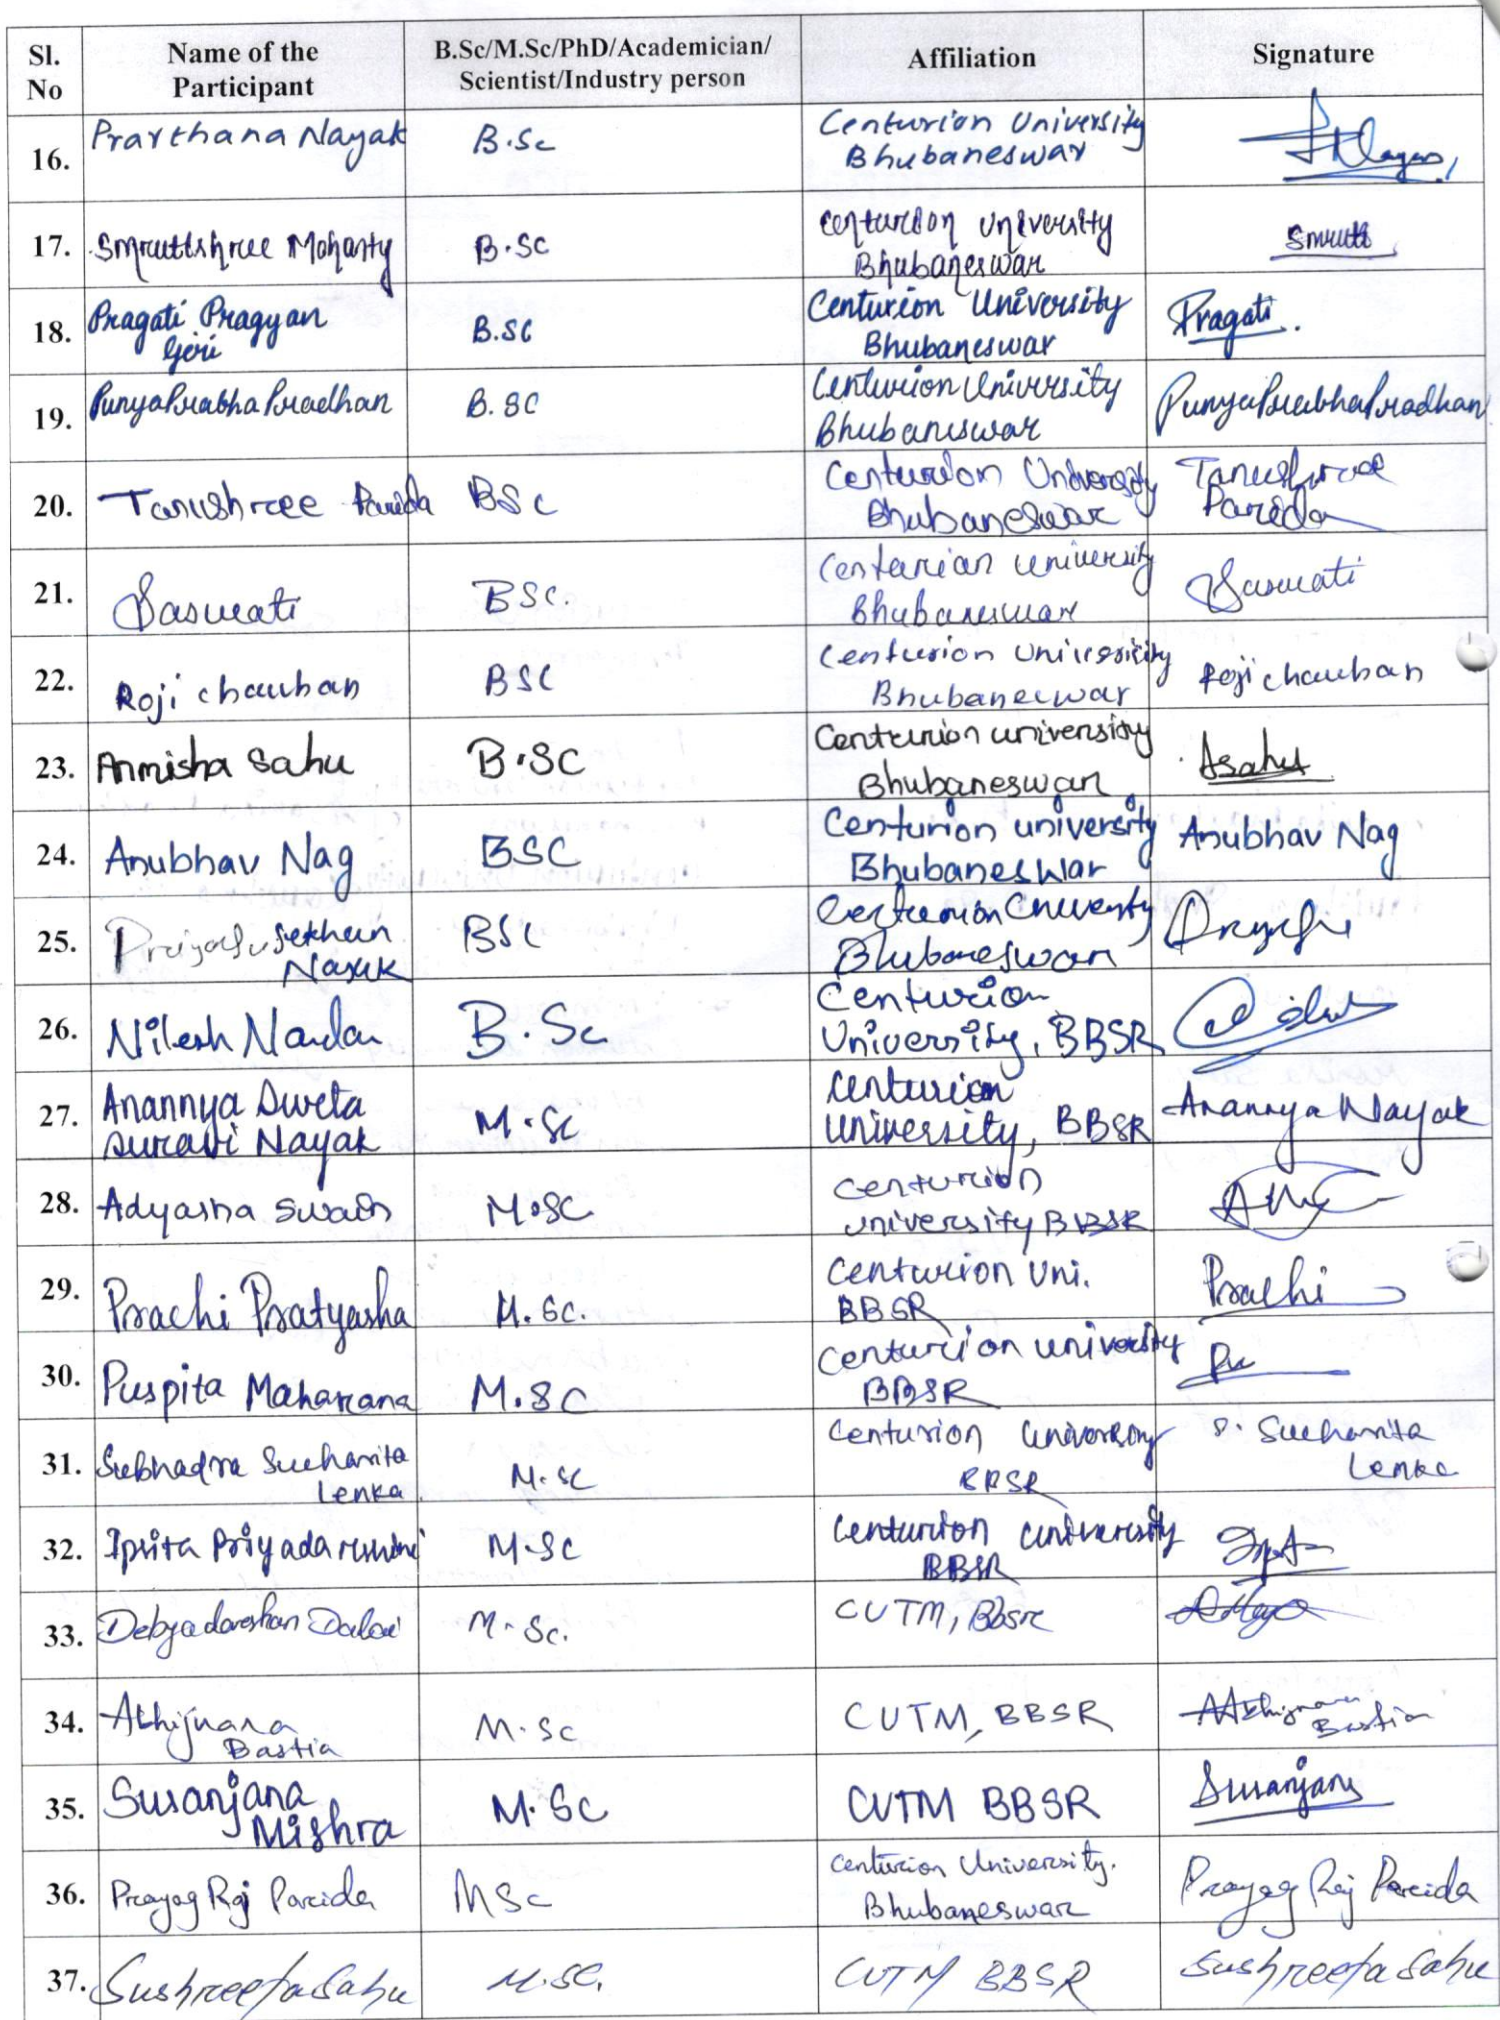 Sl. No Name of the Participant B.Sc/M.Sc/PhD/Academician/ Scientist/Industry person Affiliation Signature
16. Prarthana Nayak B.Sc Centurion University Bhubaneswar
17. Smruttishree Mohanty B.SC Centurion University Bhubaneswar Smrutti
18. Pragati Pragyan Giri B.SC Centurion University Bhubaneswar Pragati
19. PunyaPrabha Pradhan B.SC Centurion University Bhubaneswar PunyaPrabha Pradhan
20. Tanushree Parida BSc Centurion University Bhubaneswar Tanushree Parida
21. Saswati BSc. Centurian University Bhubaneswar Saswati
22. Roji chauhan BSC Centurion University Bhubaneswar Roji chauhan
23. Anmisha Sahu B.SC Centurion university Bhubaneswar Asahu
24. Anubhav Nag BSC Centurion university Bhubaneswar Anubhav Nag
25. Sekhar Nayak BSC Centurion University Bhubaneswar
26. Nilesh Nanda B.Sc Centurion University, BBSR
27. Anannya Sweta Suravi Nayak M.Sc Centurion University, BBSR Anannya Nayak
28. Adyasha Swain M.SC Centurion University BBSR
29. Prachi Pratyasha M.Sc. Centurion Uni. BBSR Prachi
30. Puspita Maharana M.SC Centurion university BBSR
31. Subhadra Sucharita Lenka M.Sc Centurion University BBSR S. Sucharita Lenka
32. Ipsita Priyadarshini M.SC Centurion University BBSR
33. Debyadarshan Dalai M.Sc. CUTM, Bbsr
34. Abhijnana Bastia M.SC CUTM, BBSR Abhijnana Bastia
35. Susanjana Mishra M.Sc CUTM BBSR Susanjana
36. Prayag Raj Parida MSc Centurion University. Bhubaneswar Prayag Raj Parida
37. Sushreeta Sahu M.SC. CUTM BBSR Sushreeta Sahu